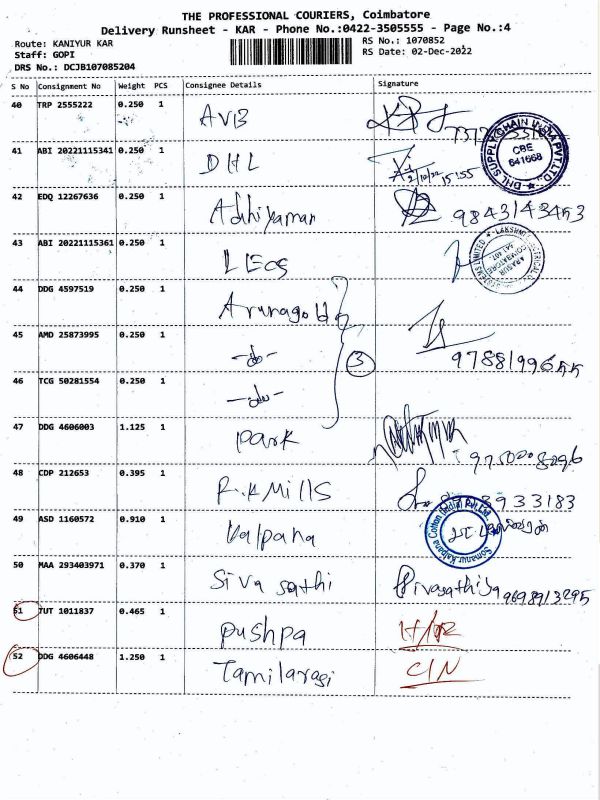 THE PROFESSIONAL COURIERS, Coimbatore
Delivery Runsheet - KAR - Phone No.:0422-3505555 - Page No.:4
Route: KANIYUR KAR
Staff: GOPI
DRS No.: DCJB107085204
RS No.: 1070852
RS Date: 02-Dec-2022
S No Consignment No Weight PCS Consignee Details Signature
40 TRP 2555222 0.250 1 AVB
41 ABI 20221115341 0.250 1 DHL
DHL SUPPLY CHAIN INDIA PVT. LTD. CBE 641668
42 EDQ 12267636 0.250 1 Adhiyaman 9843143453
43 ABI 20221115361 0.250 1 LECS
44 DDG 4597519 0.250 1 Arunagold
45 AMD 25873995 0.250 1 -do- 3
46 TCG 50281554 0.250 1 -do-
47 DDG 4606003 1.125 1 Park
48 CDP 212653 0.395 1 R.K Mills
49 ASD 1160572 0.910 1 Kalpana
Somanur Kalpana Cotton (India) Pvt Ltd.
50 MAA 293403971 0.370 1 Siva sathi Sivasathiya 9698913295
51 TUT 1011837 0.465 1 Pushpa
52 DDG 4606448 1.250 1 Tamilarasi CIN